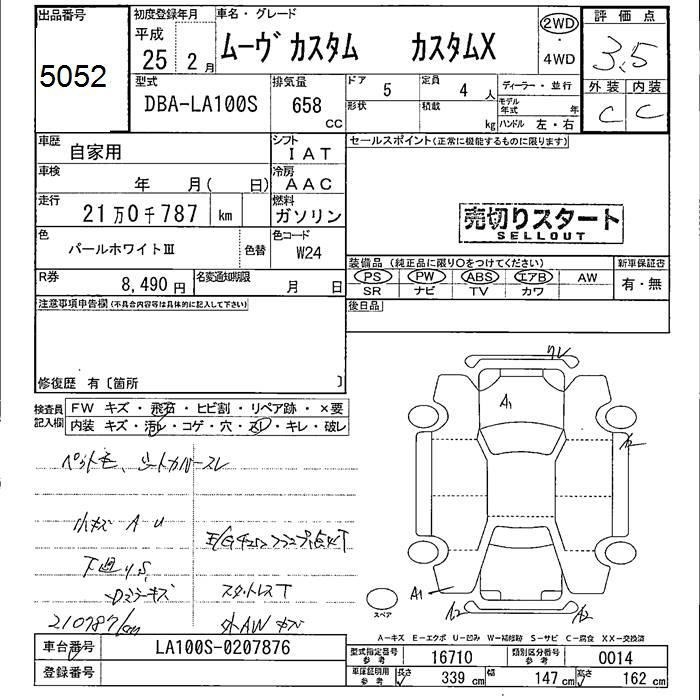 出品番号
5052
初度登録年月
平成
25 2月
車名・グレード
ムーヴ カスタム カスタムX
2WD
・
4WD
評価点
3.5
外装 内装
C C
型式
DBA-LA100S
排気量
658
CC
ドア
5
定員
4 人
形状
積載
kg
ディーラー・並行
モデル年式 年
ハンドル 左・右
車歴
自家用
シフト
IAT
車検
年 月( 日)
冷房
AAC
走行
21万0千787 km
燃料
ガソリン
色
パールホワイトⅢ
色替
色コード
W24
R券
8,490円
名変通知期限
月 日
セールスポイント(正常に機能するものに限ります)
売切りスタート
SELLOUT
装備品(純正品に限り〇をつけてください)
PS PW ABS エアB AW
SR ナビ TV カワ
新車保証書
有・無
後日品
注意事項申告欄(不具合内容等は具体的に記入して下さい)
修復歴 有〔箇所 〕
検査員
記入欄
FW キズ・飛石・ヒビ割・リペア跡・×要
内装 キズ・汚レ・コゲ・穴・スレ・キレ・破レ
ペット毛、シートカバースレ
小キズ A U
下廻りS
Dミラーキズ
スタットレスT
210787km
外AWキズ
A1
A2
A1
A2
A2
スペア
A-キズ E-エクボ U-凹み W-補修跡 S-サビ C-腐食 XX-交換済
車台番号
LA100S-0207876
登録番号
型式指定番号
参考
16710
類別区分番号
参考
0014
車庫証明用
参考
長さ
339 cm
幅
147 cm
高さ
162 cm